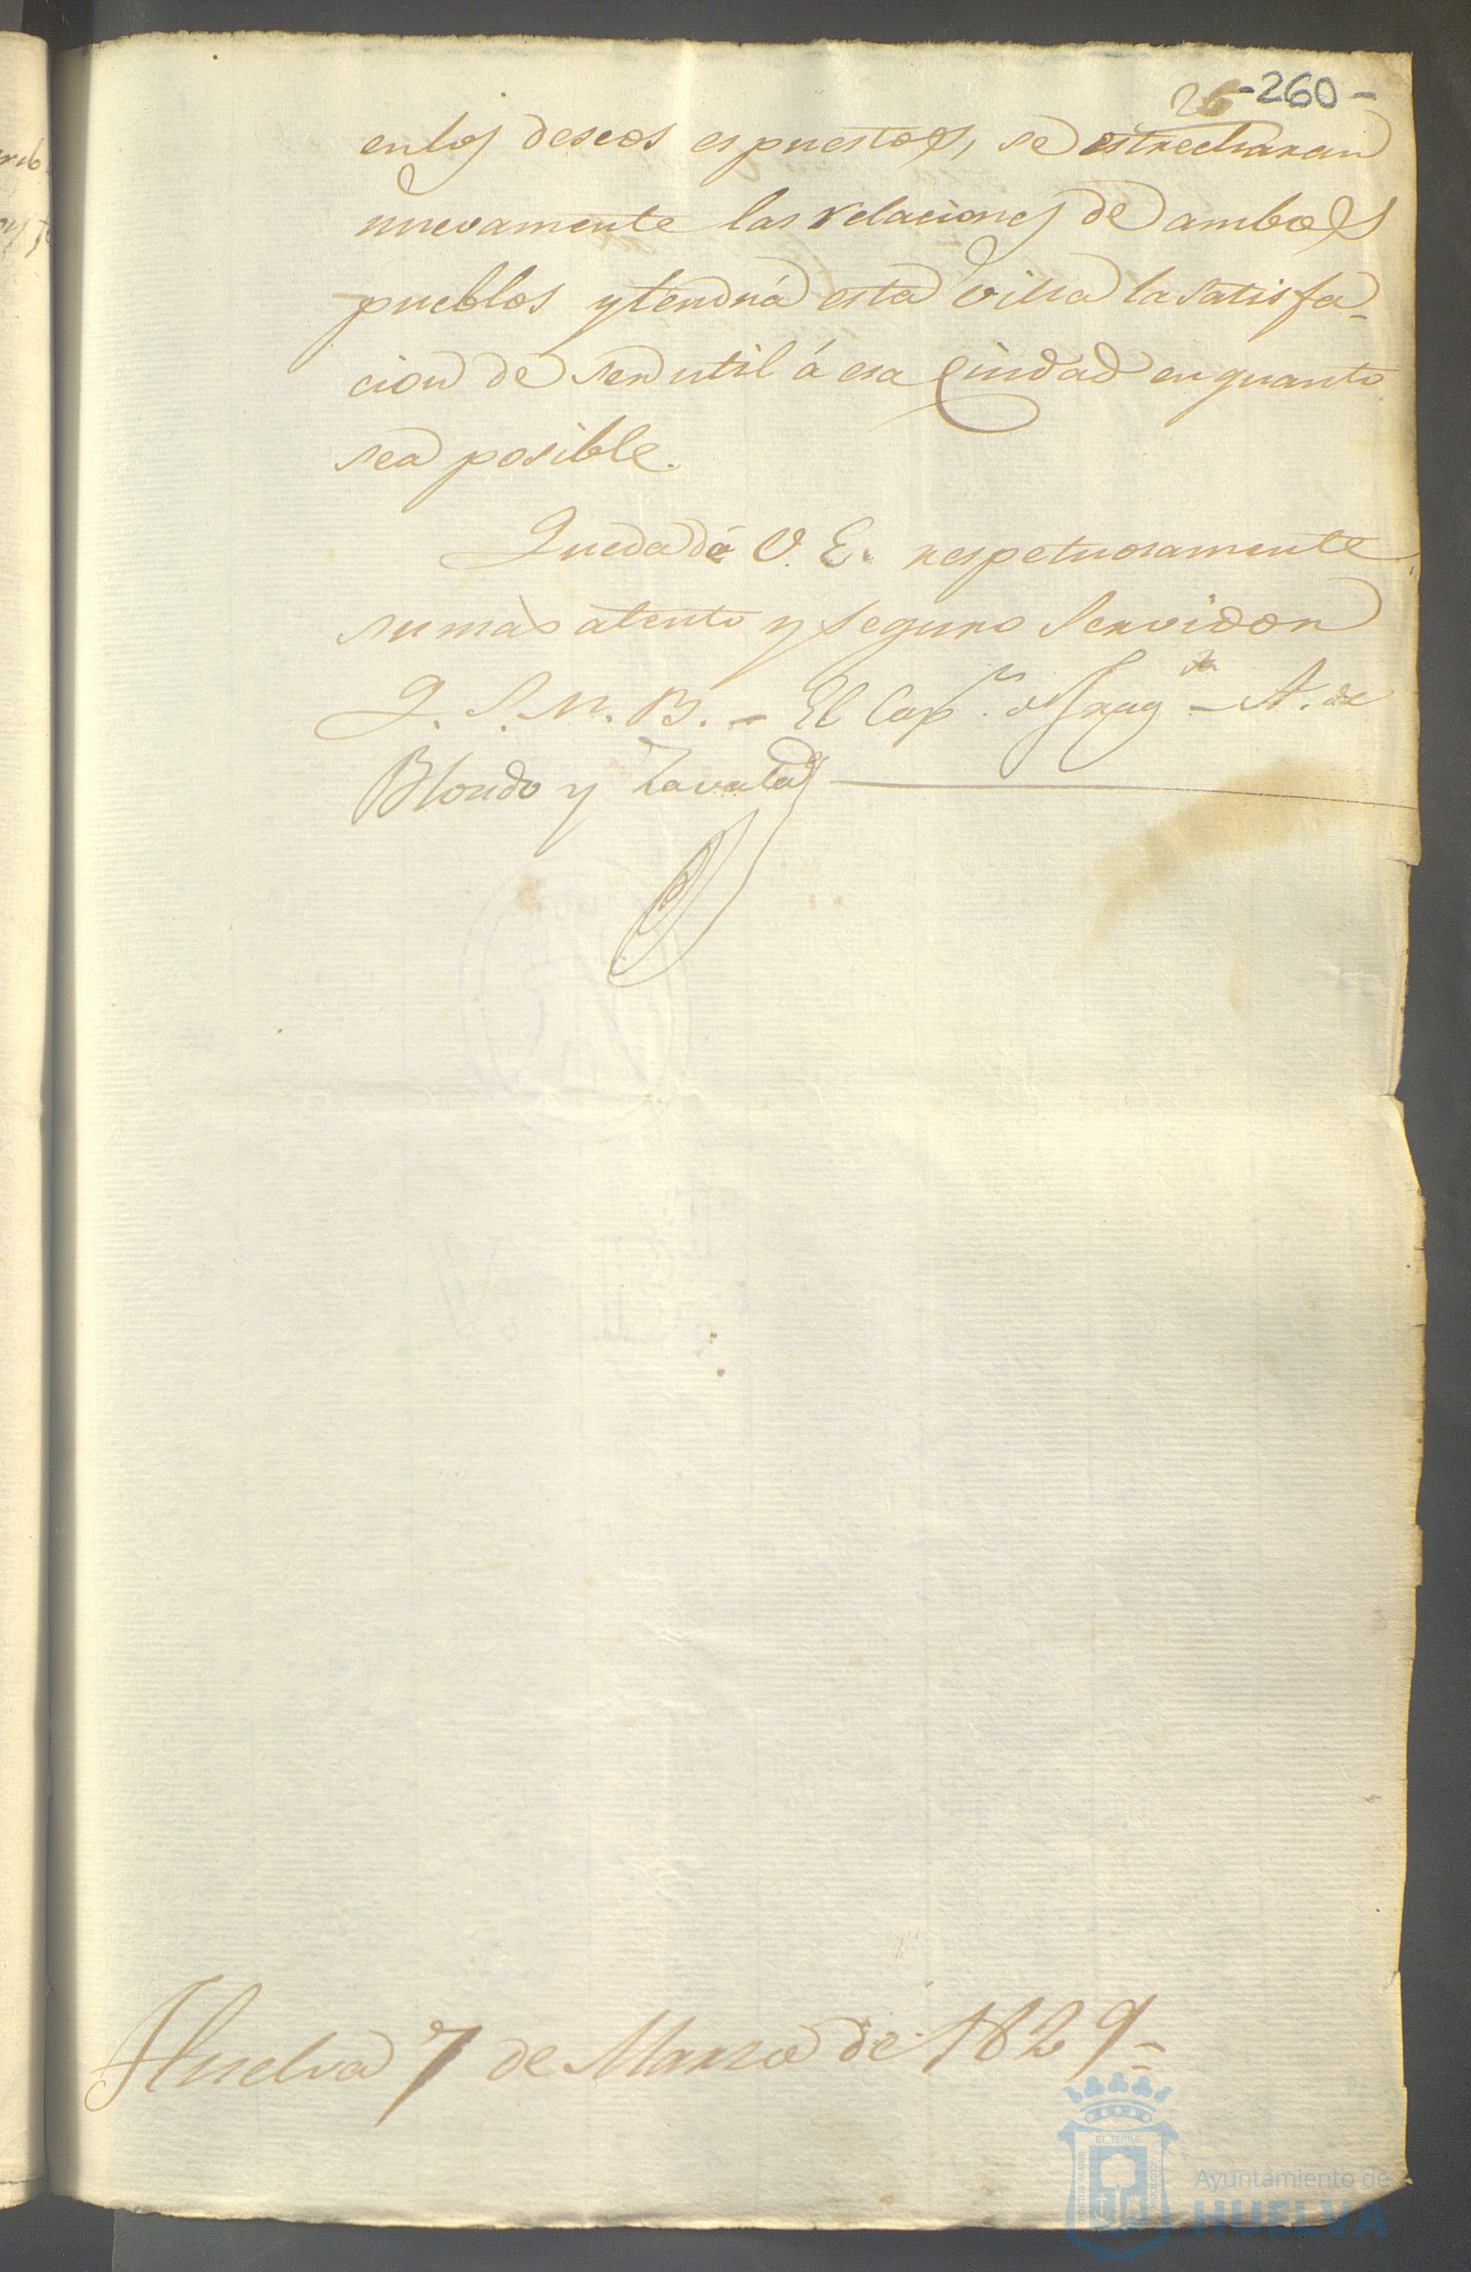 -260-
en los deseos espuestos, se estrecharan
nuevamente las relaciones de ambos
pueblos y tendrá esta villa la satisfa-
cion de ser util á esa Ciudad en quanto
sea posible.
Queda de V. E. respetuosamente
su mas atento y seguro Servidor
Q. S. M. B. - El Cap.n de Frag.ta - A. de
Blondo y Zavala
Huelva 7 de Marzo de 1829-
ET TERRÆ
PORTUS MARIS
CUSTODIA
Ayuntamiento de
HUELVA